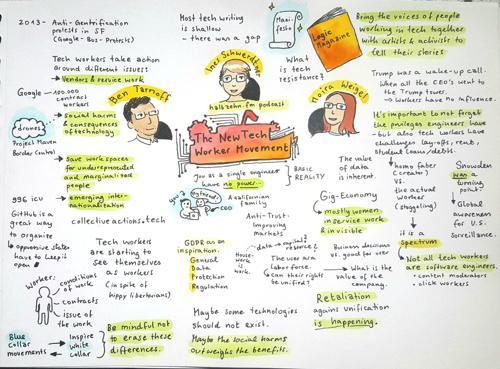 2013 - Anti-Gentrification
protests in SF
(Google-Bus-Protests)
Tech workers take action
around different issues.
→ Vendors & service work
Google → 100.000
contract
workers
→ social harms &
consequences
of technology
drones
Project Maven
Border Control
→ save work spaces
for underrepresented
and marginalized
people
996 ICU → emerging inter-
nationalization
GitHub is a
great way
to organize
↳ oppressive states
have to keep it
open
collectiveactions.tech
Tech workers
are starting to
see themselves
as workers
(in spite of
hippy libertarians)
Worker:
conditions of
work
contracts
issue of
the work
Blue
collar
movements
→ Inspire ←
white
collar
Be mindful not
to erase these
differences.
Most tech writing
is shallow
→ there was a gap
Manifesto
Logic
Magazine
Ines Schwerdtner
halbzehn.fm podcast
Ben Tarnoff
Moira Weigel
What is
tech
resistance?
The New Tech
Worker Movement
you as a single engineer
have no power.
BASIC
REALITY
CEO
Californian
family
Anti-Trust.
Improving
markets
The value
of data
is inherent.
GDPR as an
inspiration:
General
Data
Protection
Regulation
House-
work is
work.
The user are
labor force.
can their rights
be unified?
Gig-Economy
→ mostly women
in service work
& invisible
Business decisions
vs. good for user
→ What is the
value of the
company.
Maybe some technologies
should not exist.
Maybe the social harms
outweighs the benefits.
Retaliation
agains unification
is happening.
Bring the voices of people
working in tech together
with artists & activists to
tell their stories.
Trump was a wake-up call.
When all the CEO's went to
the Trump tower.
→ Workers have no influence.
It's important to not forget
the privileges engineers have
- but also tech workers have
challenges: lay-offs, rent,
student loans/debt.
homo faber
(creator)
vs
the actual
worker
(struggeling)
↓
it is a
spectrum
Snowden
was a
turning
point
↓
Global
awareness
for U.S.
Surveillance.
Not all tech workers
are software engineers.
· content moderators
· click workers